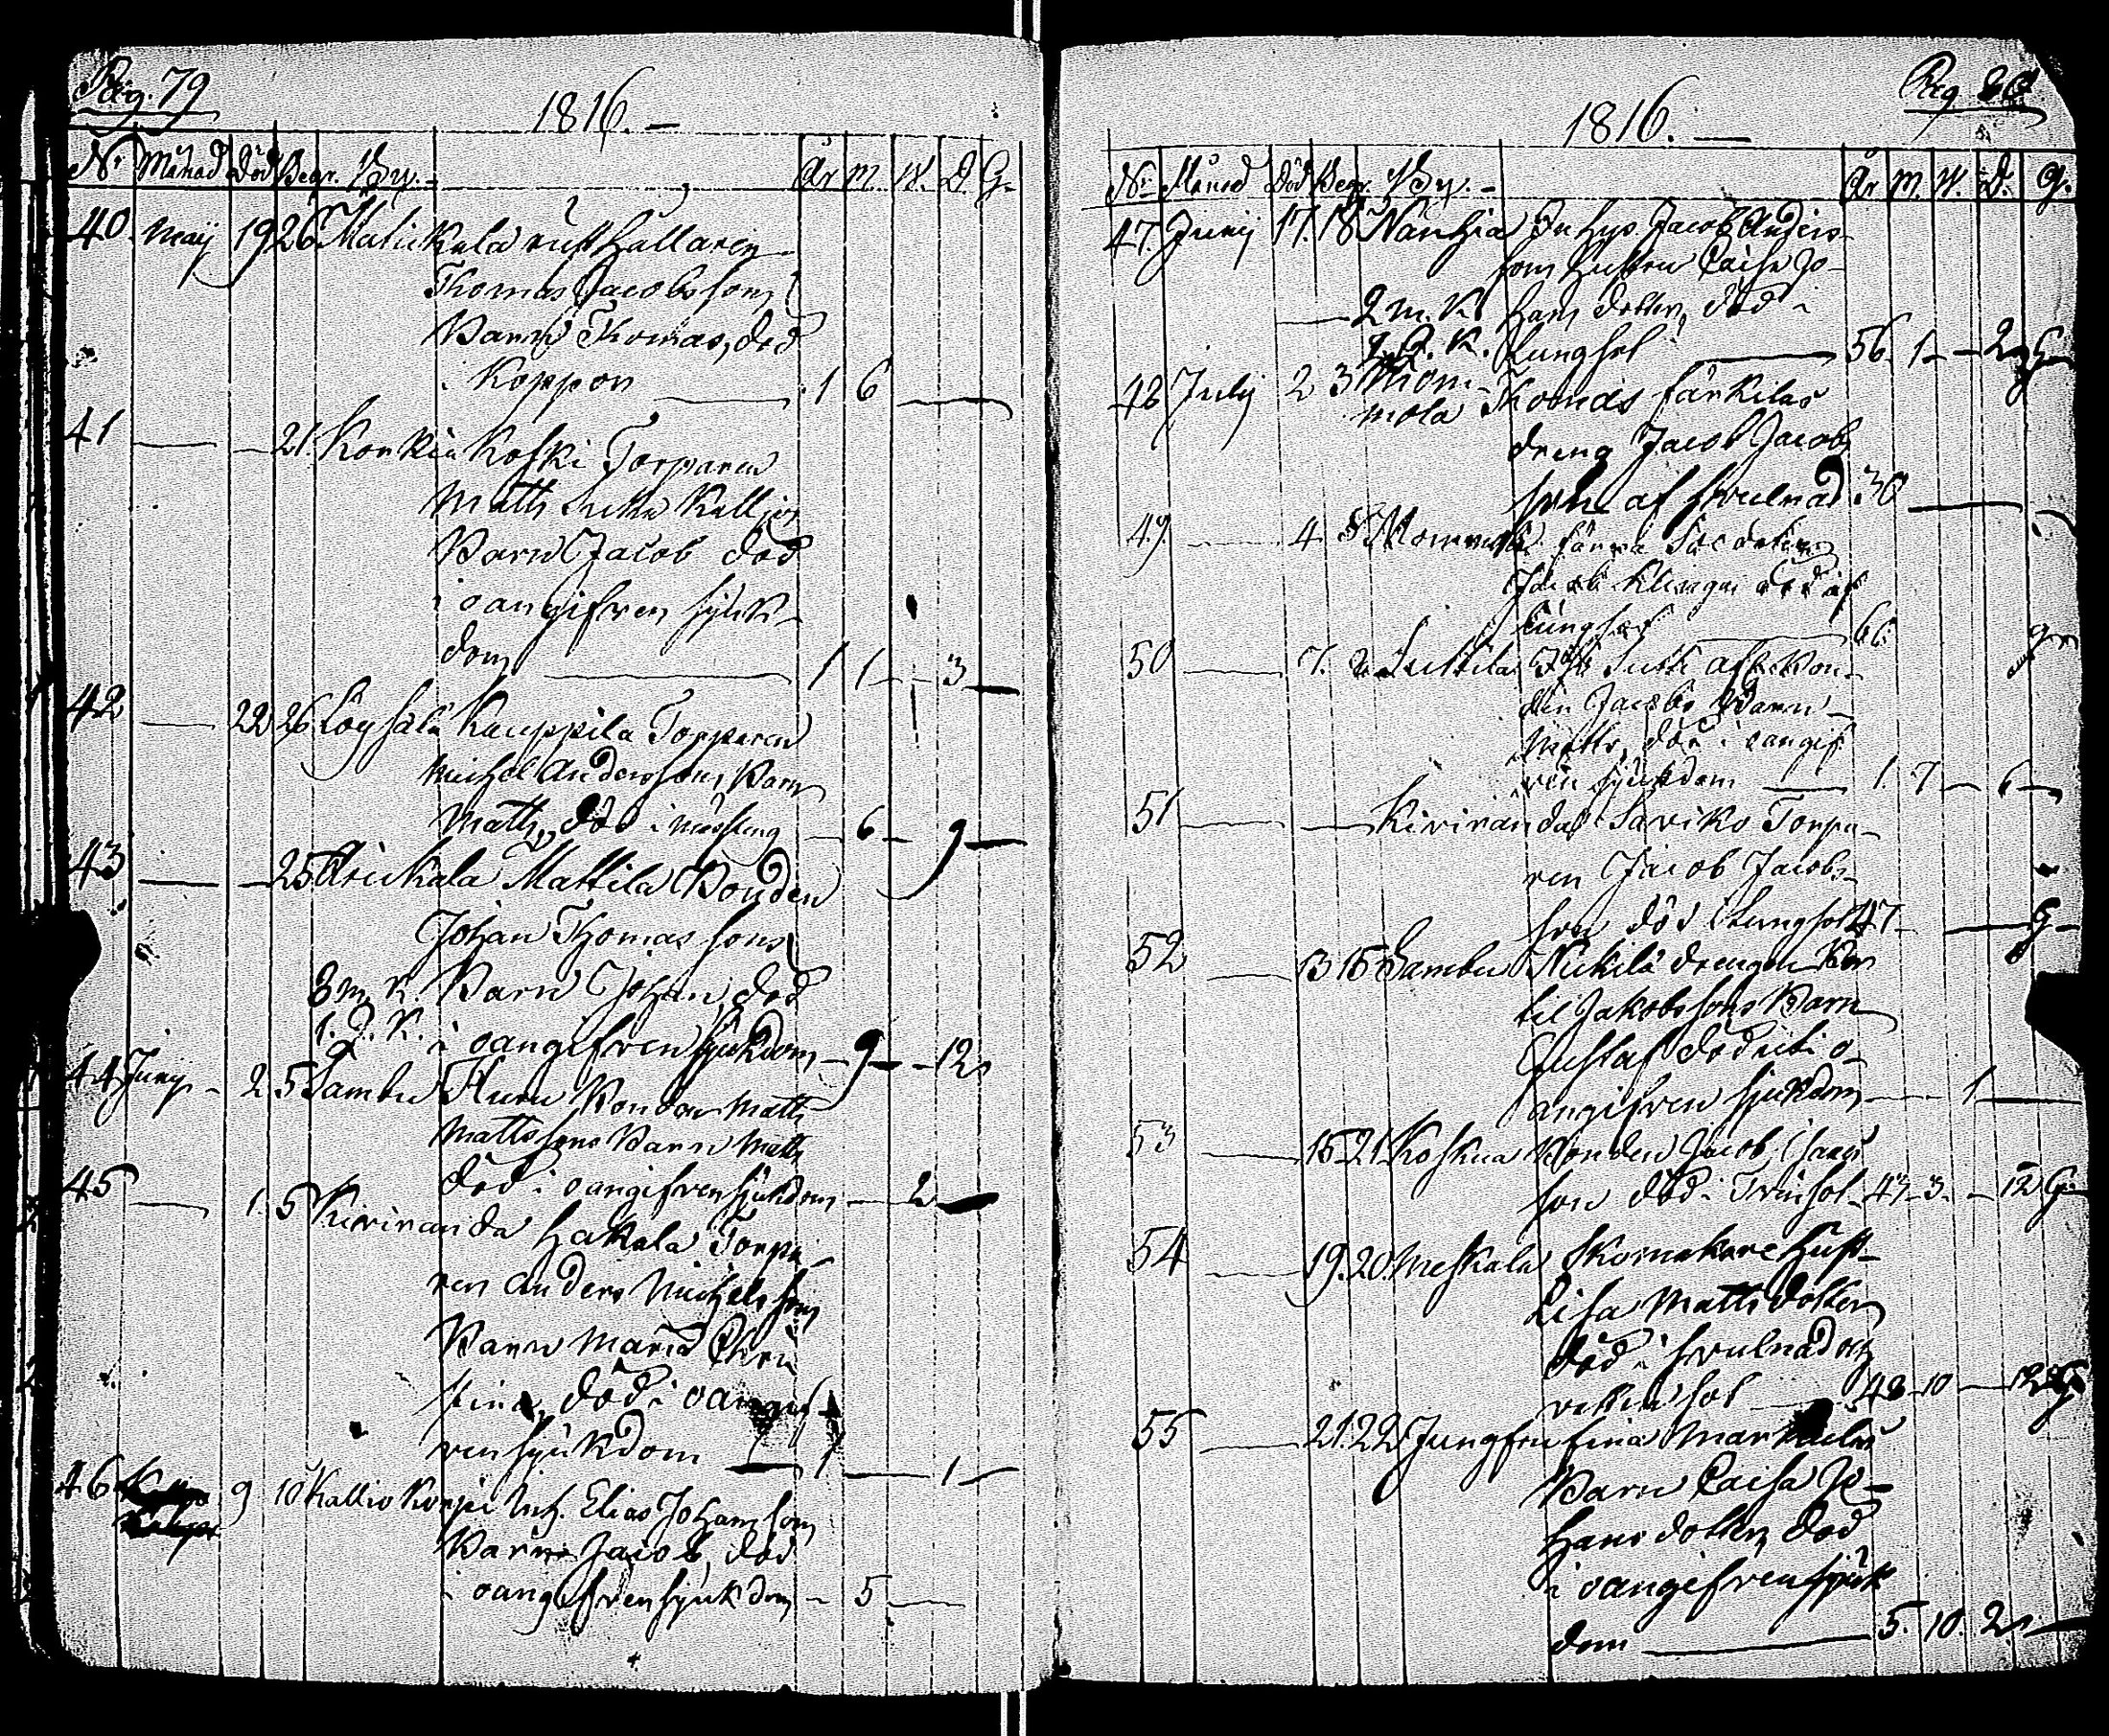 Pag. 79
1816. —
No Månad Död Begr. By. År M. W. D. G.
40. Maij 19 26 Matickala rusthållaren
Thomas Jacobssons
Barn Thomas, död
i Koppor — 1 6 —
41 — — 21. Konkia Koski Torparen
Matts
Barn Jacob död
i oangifven sjuk-
dom — 1 1 — 3 —
42 — 22 26 Kauppila Torparen
Michel Anderssons Barn
Matts, död i messling — 6 — 9 —
43 — — 25 Mattila Bonden
Johan Thomassons
3 m. K. Barn Johan, död
1. D. K. i oangifven sjukdom — 9 — 12
44 Junij — 2 5 Sambu Bonden Matts
Mattssons Barn Matts
död i oangifven sjukdom — 2 —
45 — 1. 5 Kiviranda Hakala Torpa-
ren Anders Michelssons
Barn Maria Chri-
stina, död i oangif-
ven sjukdom — 1 — 1 —
46 9 10 Kallio Korpi Inh. Elias Johanssons
Barn Jacob, död
i oangifven sjukdom — 5 —
Pag 80
1816. —
No Månad Död Begr. By. — År M. W. D. G.
47. Junij 17. 18 Inhys Jacob Anders-
sons Hustru Caisa Jo-
2 m. K. hans dotter, död i
1. D. K. Lungsot — 56. 1 — 2 G
48 Julij 2 3 Mom-
mola
dreng Jacob Jacobs
son af svulnad 30 —
49. — 4. 8 Mommola
Jacob Klinga död af
Lungsot — 66.
50 — 7. Suttila Bon-
den Jacobs Barn
Matts, död i oangif
ven sjukdom — 1. 7 — 6 —
51 — — Kiviranda Saviko Torpa-
ren Jacob Jacobs-
son död i Lungsot 47 — G —
52 — 13 15 Sambu drengen
Jakobssons Barn
Gustaf död uti o-
angifven sjukdom — 1 —
53 — 15 21. Koskua Bonden Jacob Isaacs
son död i Tvinsot — 43 — 3 — 12 G
54 — 19. 20. Meskala Skomakare Hust-
Lisa Matts dotter
död i svulnad och
sot — 48 — 10 — 12 G
55 — 21. 22 Jungfru
Barn Caisa Jo-
hans dotter, död
i oangifven sjuk
dom — 5. 10. 2. —